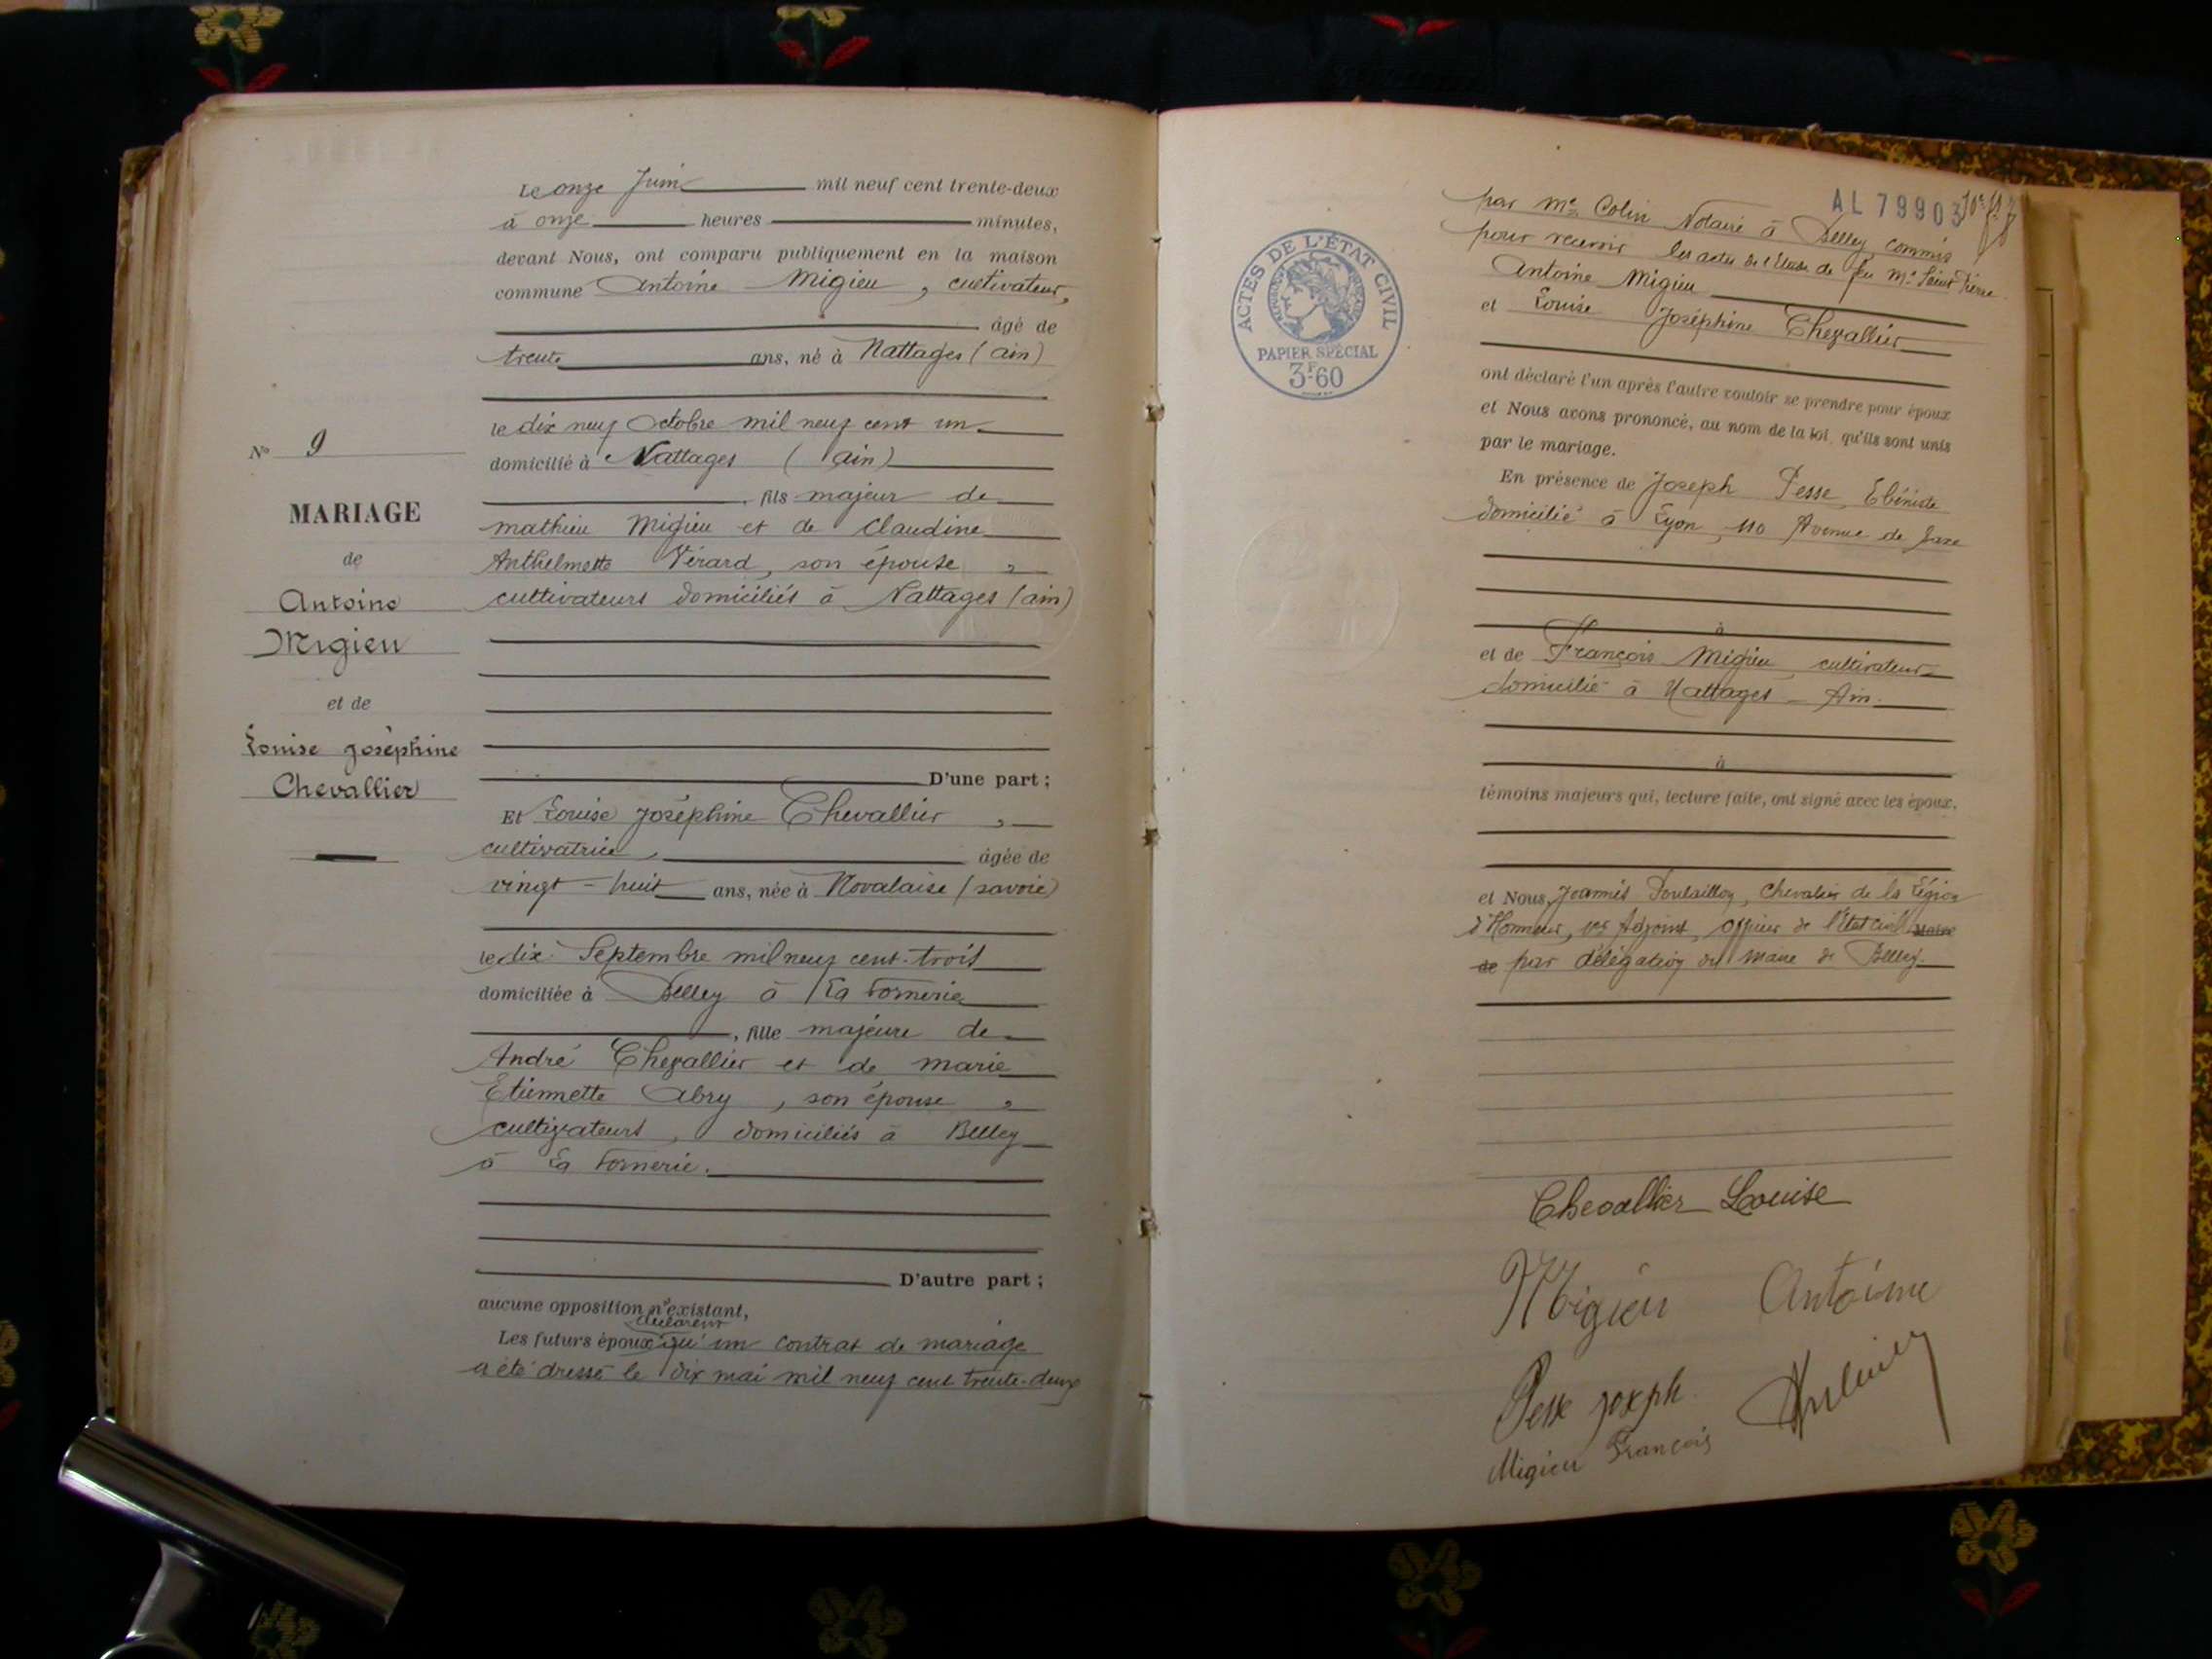 Le onze Juin mil neuf cent trente-deux
à onze heures minutes,
devant Nous, ont comparu publiquement en la maison
commune Antoine Migieu, cultivateur,
âgé de
trente ans, né à Nattages (Ain)
le dix neuf Octobre mil neuf cent un
domicilié à Nattages (Ain)
, fils majeur de
Mathieu Migieu et de Claudine
Anthelmette Vérard, son épouse,
cultivateurs domiciliés à Nattages (Ain)
D'une part ;
Et Louise Joséphine Chevallier,
cultivatrice, âgée de
vingt-huit ans, née à Novalaise (Savoie)
le dix Septembre mil neuf cent trois
domiciliée à Belley à La Fornerie
, fille majeure de
André Chevallier et de Marie
Etiennette Abry, son épouse,
cultivateurs, domiciliés à Belley
à La Fornerie.
D'autre part ;
aucune opposition n'existant,
déclarent
Les futurs époux qu'un contrat de mariage
a été dressé le dix mai mil neuf cent trente-deux
No 9
MARIAGE
de
Antoine
Migieu
et de
Louise Joséphine
Chevallier
AL 79903
par Me Colin Notaire à Belley commis
pour recevoir les actes de l'Etude de feu Me Saint Pierre.
Antoine Migieu
et Louise Joséphine Chevallier
ACTES DE L'ÉTAT CIVIL
PAPIER SPÉCIAL
3F60
ont déclaré l'un après l'autre vouloir se prendre pour époux
et Nous avons prononcé, au nom de la loi, qu'ils sont unis
par le mariage.
En présence de Joseph Pesse, Ebéniste
domicilié à Lyon, 110 Avenue de Saxe
à
et de François Migieu, cultivateur
domicilié à Nattages - Ain.
à
témoins majeurs qui, lecture faite, ont signé avec les époux,
et Nous, Joannès, Chevalier de la Légion
d'Honneur, 1er Adjoint, Officier de l'état civil Maire
de par délégation du Maire de Belley.
Chevallier Louise
Migieu Antoine
Pesse Joseph
Migieu François